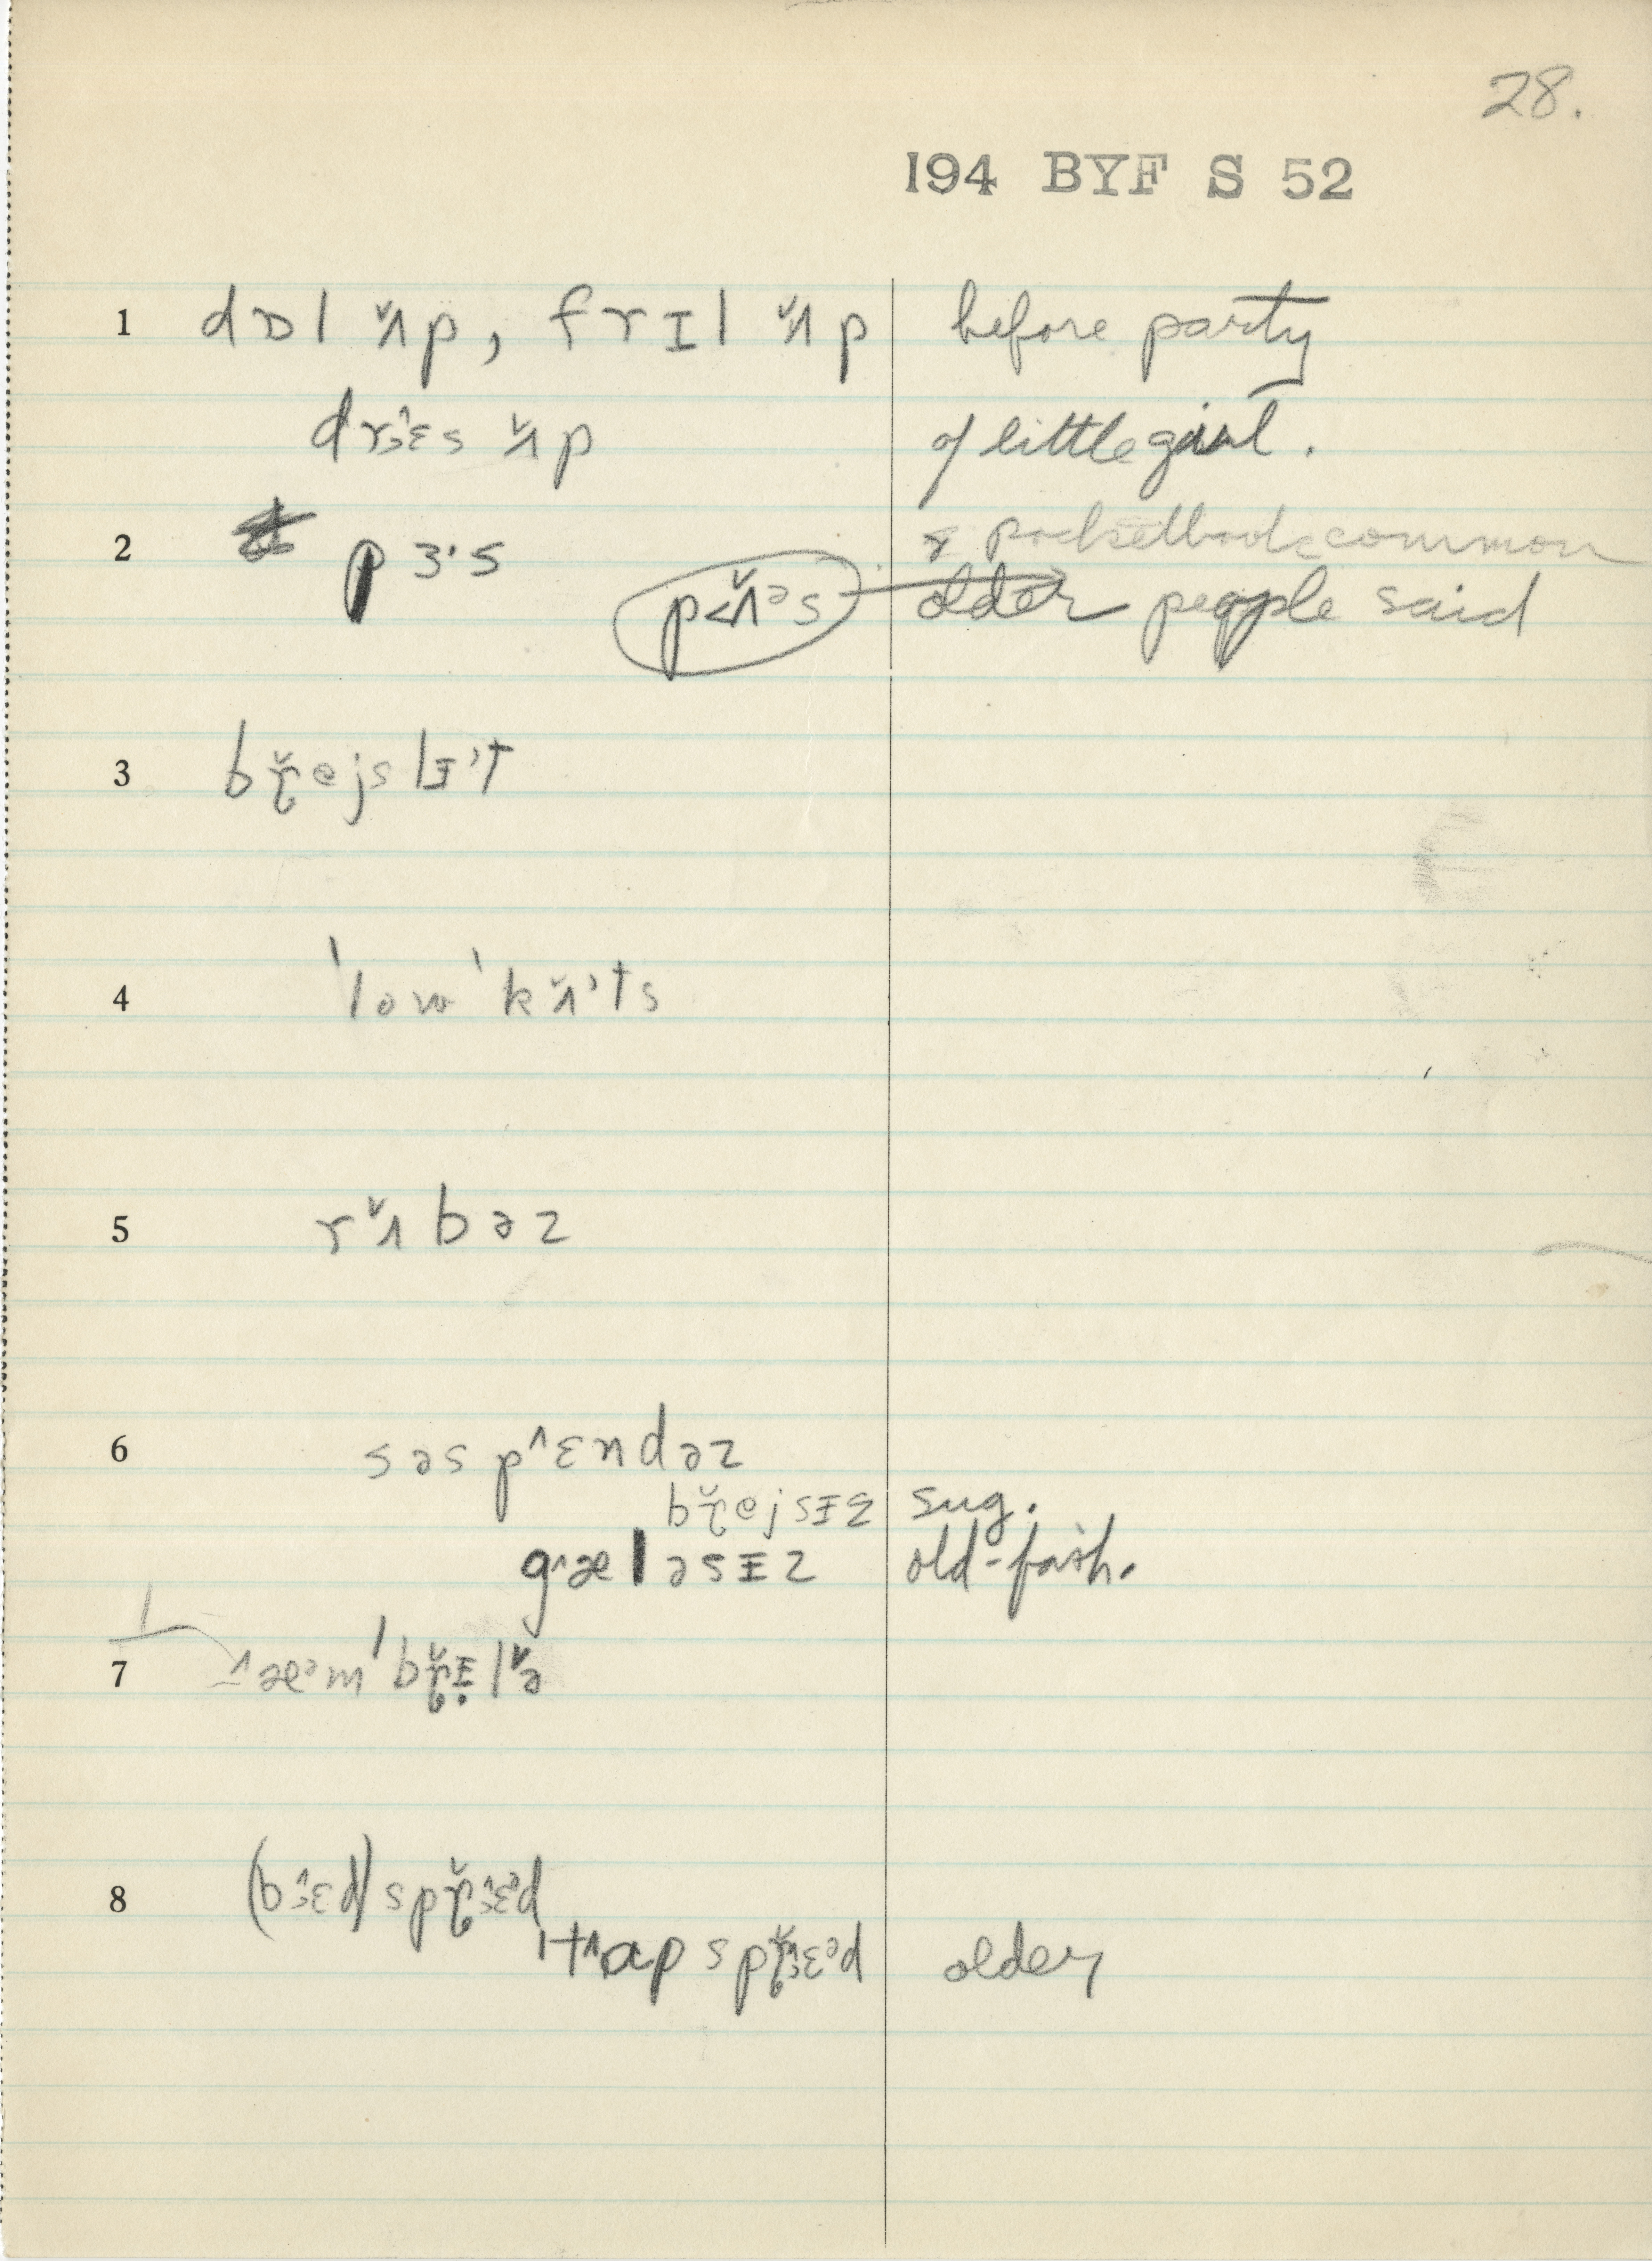 28.
194 BYF S 52
1 dɒl ʌ̌p, frɪl ʌ̌p before party
drɛ̂s ʌ̌p of little girl.
2 pɜ·s & pocketbook common
p<ʌ̌ᵊs older people said
3 bř̢ejslɪ't
4 'low'kʌ̌'ts
5 rʌ̌bəz
6 səsp^ɛndəz
bř̢ejsɪz sug.
g^æləsɪz old-fash.
7 ^æᵊm'bř̢ɪlə̌
8 (bɛ̂d) spř̢ɛ̂ᵊd
't^ɑp spř̢ɛ̂ᵊd older